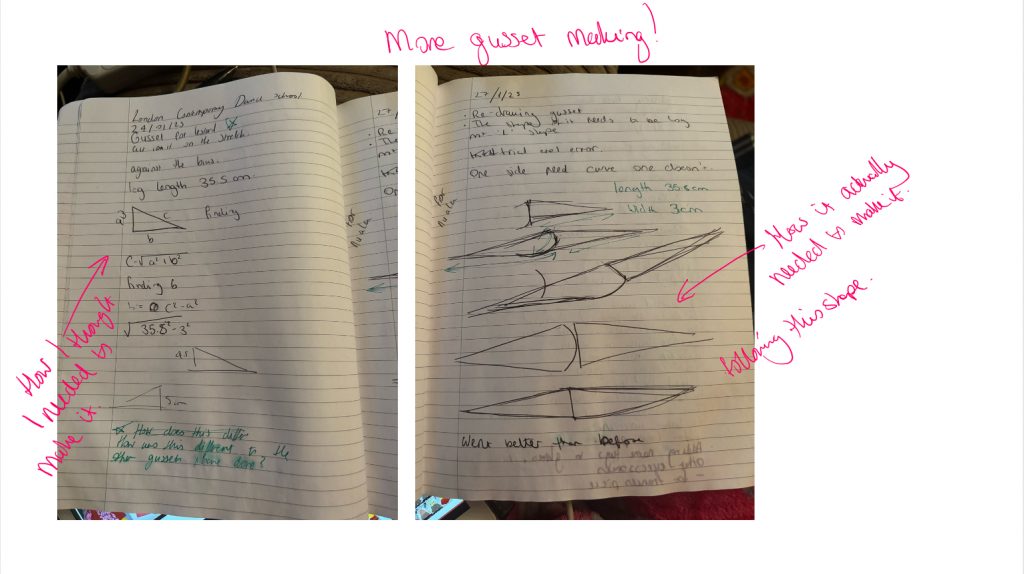 More gusset making!
London Contemporary Dance School
24/01/23
Gusset for leotard
on the stretch
against the bias.
leg length 35.5cm
a 3
c
finding
b
C=√a²+b²
finding b
b= c²-a²
√ 35.5²-3²
4.5
5cm
How does this differ
How was this different to the
other gussets I have done?
How I thought
I needed to
make it.
27/1/23
· Re-drawing gusset
· The shape of it needs to be long
not 'L' shape
trial and error.
One side need curve one doesn't.
length 35.5cm
width 3cm
for
Nuala
for
Nuala
went better than before
How it actually
needed to make it.
following this shape.